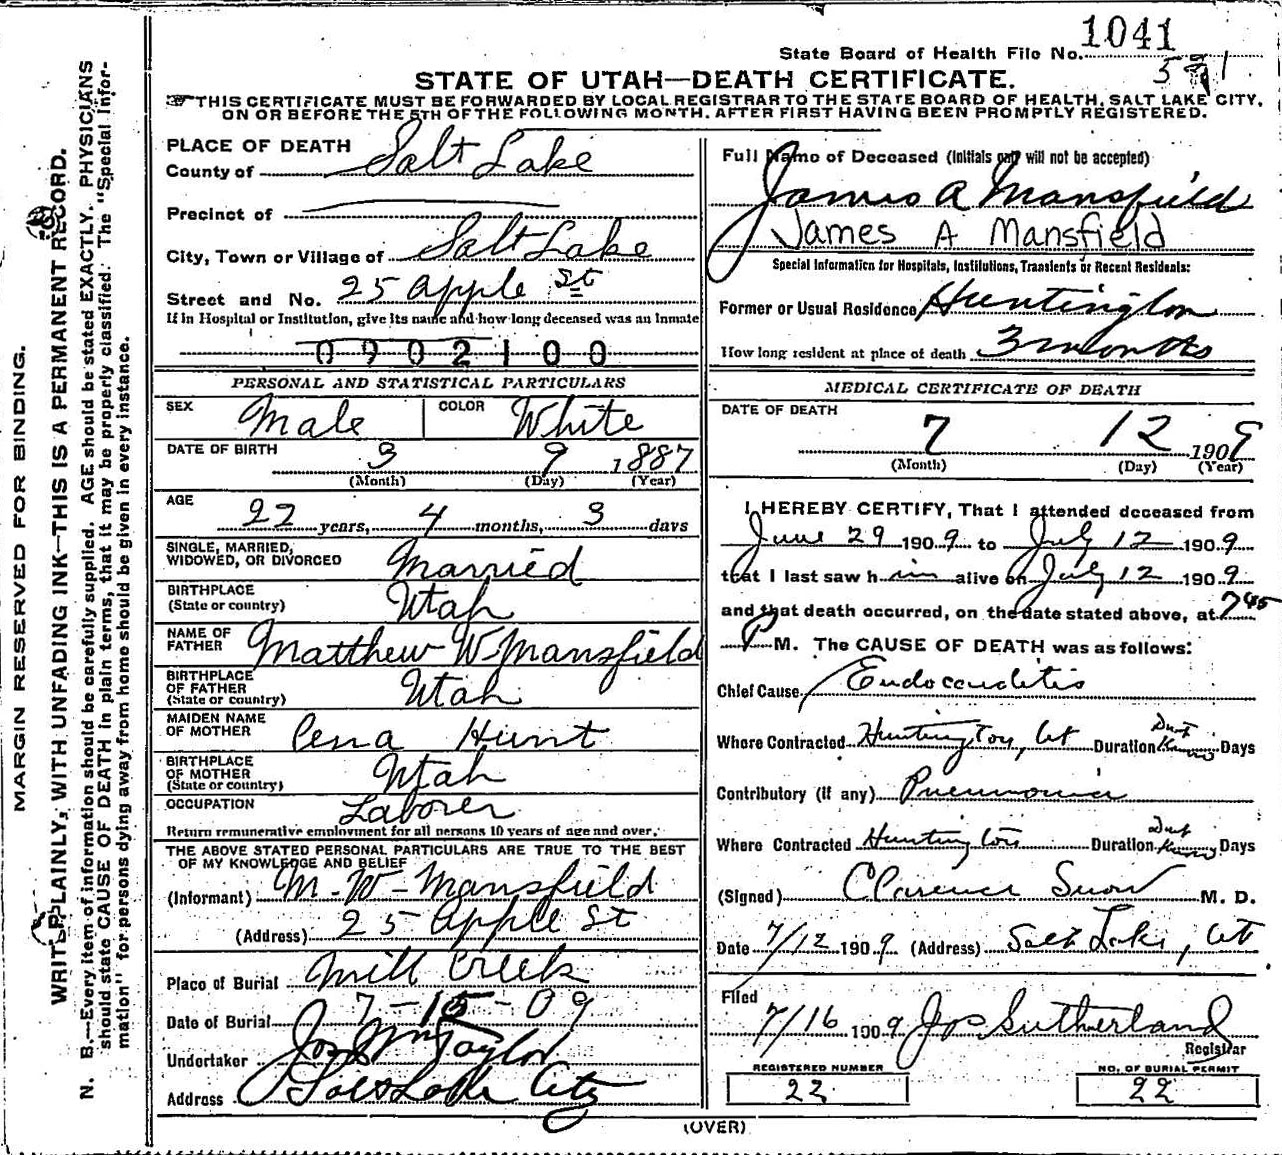 MARGIN RESERVED FOR BINDING.
WRITE PLAINLY, WITH UNFADING INK—THIS IS A PERMANENT RECORD.
N. B.—Every item of information should be carefully supplied. AGE should be stated EXACTLY. PHYSICIANS
should state CAUSE OF DEATH in plain terms, that it may be properly classified. The "Special Infor-
mation" for persons dying away from home should be given in every instance.
State Board of Health File No. 1041
STATE OF UTAH—DEATH CERTIFICATE.
THIS CERTIFICATE MUST BE FORWARDED BY LOCAL REGISTRAR TO THE STATE BOARD OF HEALTH, SALT LAKE CITY,
ON OR BEFORE THE 5TH OF THE FOLLOWING MONTH, AFTER FIRST HAVING BEEN PROMPTLY REGISTERED.
PLACE OF DEATH
County of Salt Lake
Precinct of
City, Town or Village of Salt Lake
Street and No. 25 Apple St
If in Hospital or Institution, give its name and how long deceased was an inmate
0902100
PERSONAL AND STATISTICAL PARTICULARS
SEX Male COLOR White
DATE OF BIRTH 3 9 1887
(Month) (Day) (Year)
AGE 22 years, 4 months, 3 days
SINGLE, MARRIED,
WIDOWED, OR DIVORCED Married
BIRTHPLACE
(State or country) Utah
NAME OF
FATHER Matthew W Mansfield
BIRTHPLACE
OF FATHER
(State or country) Utah
MAIDEN NAME
OF MOTHER Lena Hunt
BIRTHPLACE
OF MOTHER
(State or country) Utah
OCCUPATION Laborer
Return remunerative employment for all persons 10 years of age and over.
THE ABOVE STATED PERSONAL PARTICULARS ARE TRUE TO THE BEST
OF MY KNOWLEDGE AND BELIEF
(Informant) M. W - Mansfield
(Address) 25 Apple St
Place of Burial Mill Creek
Date of Burial 7-15-09
Undertaker Jos Wm Taylor
Address Salt Lake City
Full Name of Deceased (Initials only will not be accepted)
James A Mansfield
James A Mansfield
Special Information for Hospitals, Institutions, Transients or Recent Residents:
Former or Usual Residence Huntington
How long resident at place of death 3 months
MEDICAL CERTIFICATE OF DEATH
DATE OF DEATH
7 12 1909
(Month) (Day) (Year)
I HEREBY CERTIFY, That I attended deceased from
June 29 1909 to July 12 1909
that I last saw him alive on July 12 1909
and that death occurred, on the date stated above, at 7 45
P M. The CAUSE OF DEATH was as follows:
Chief Cause Endocarditis
Where Contracted Huntington, Ut Duration Don't Know Days
Contributory (if any) Pneumonia
Where Contracted Huntington Duration Don't Know Days
(Signed) Clarence Snow M. D.
Date 7/12 1909 (Address) Salt Lake, Ut
Filed
7/16 1909 Jos Sutherland
Registrar
REGISTERED NUMBER
22
NO. OF BURIAL PERMIT
22
(OVER)